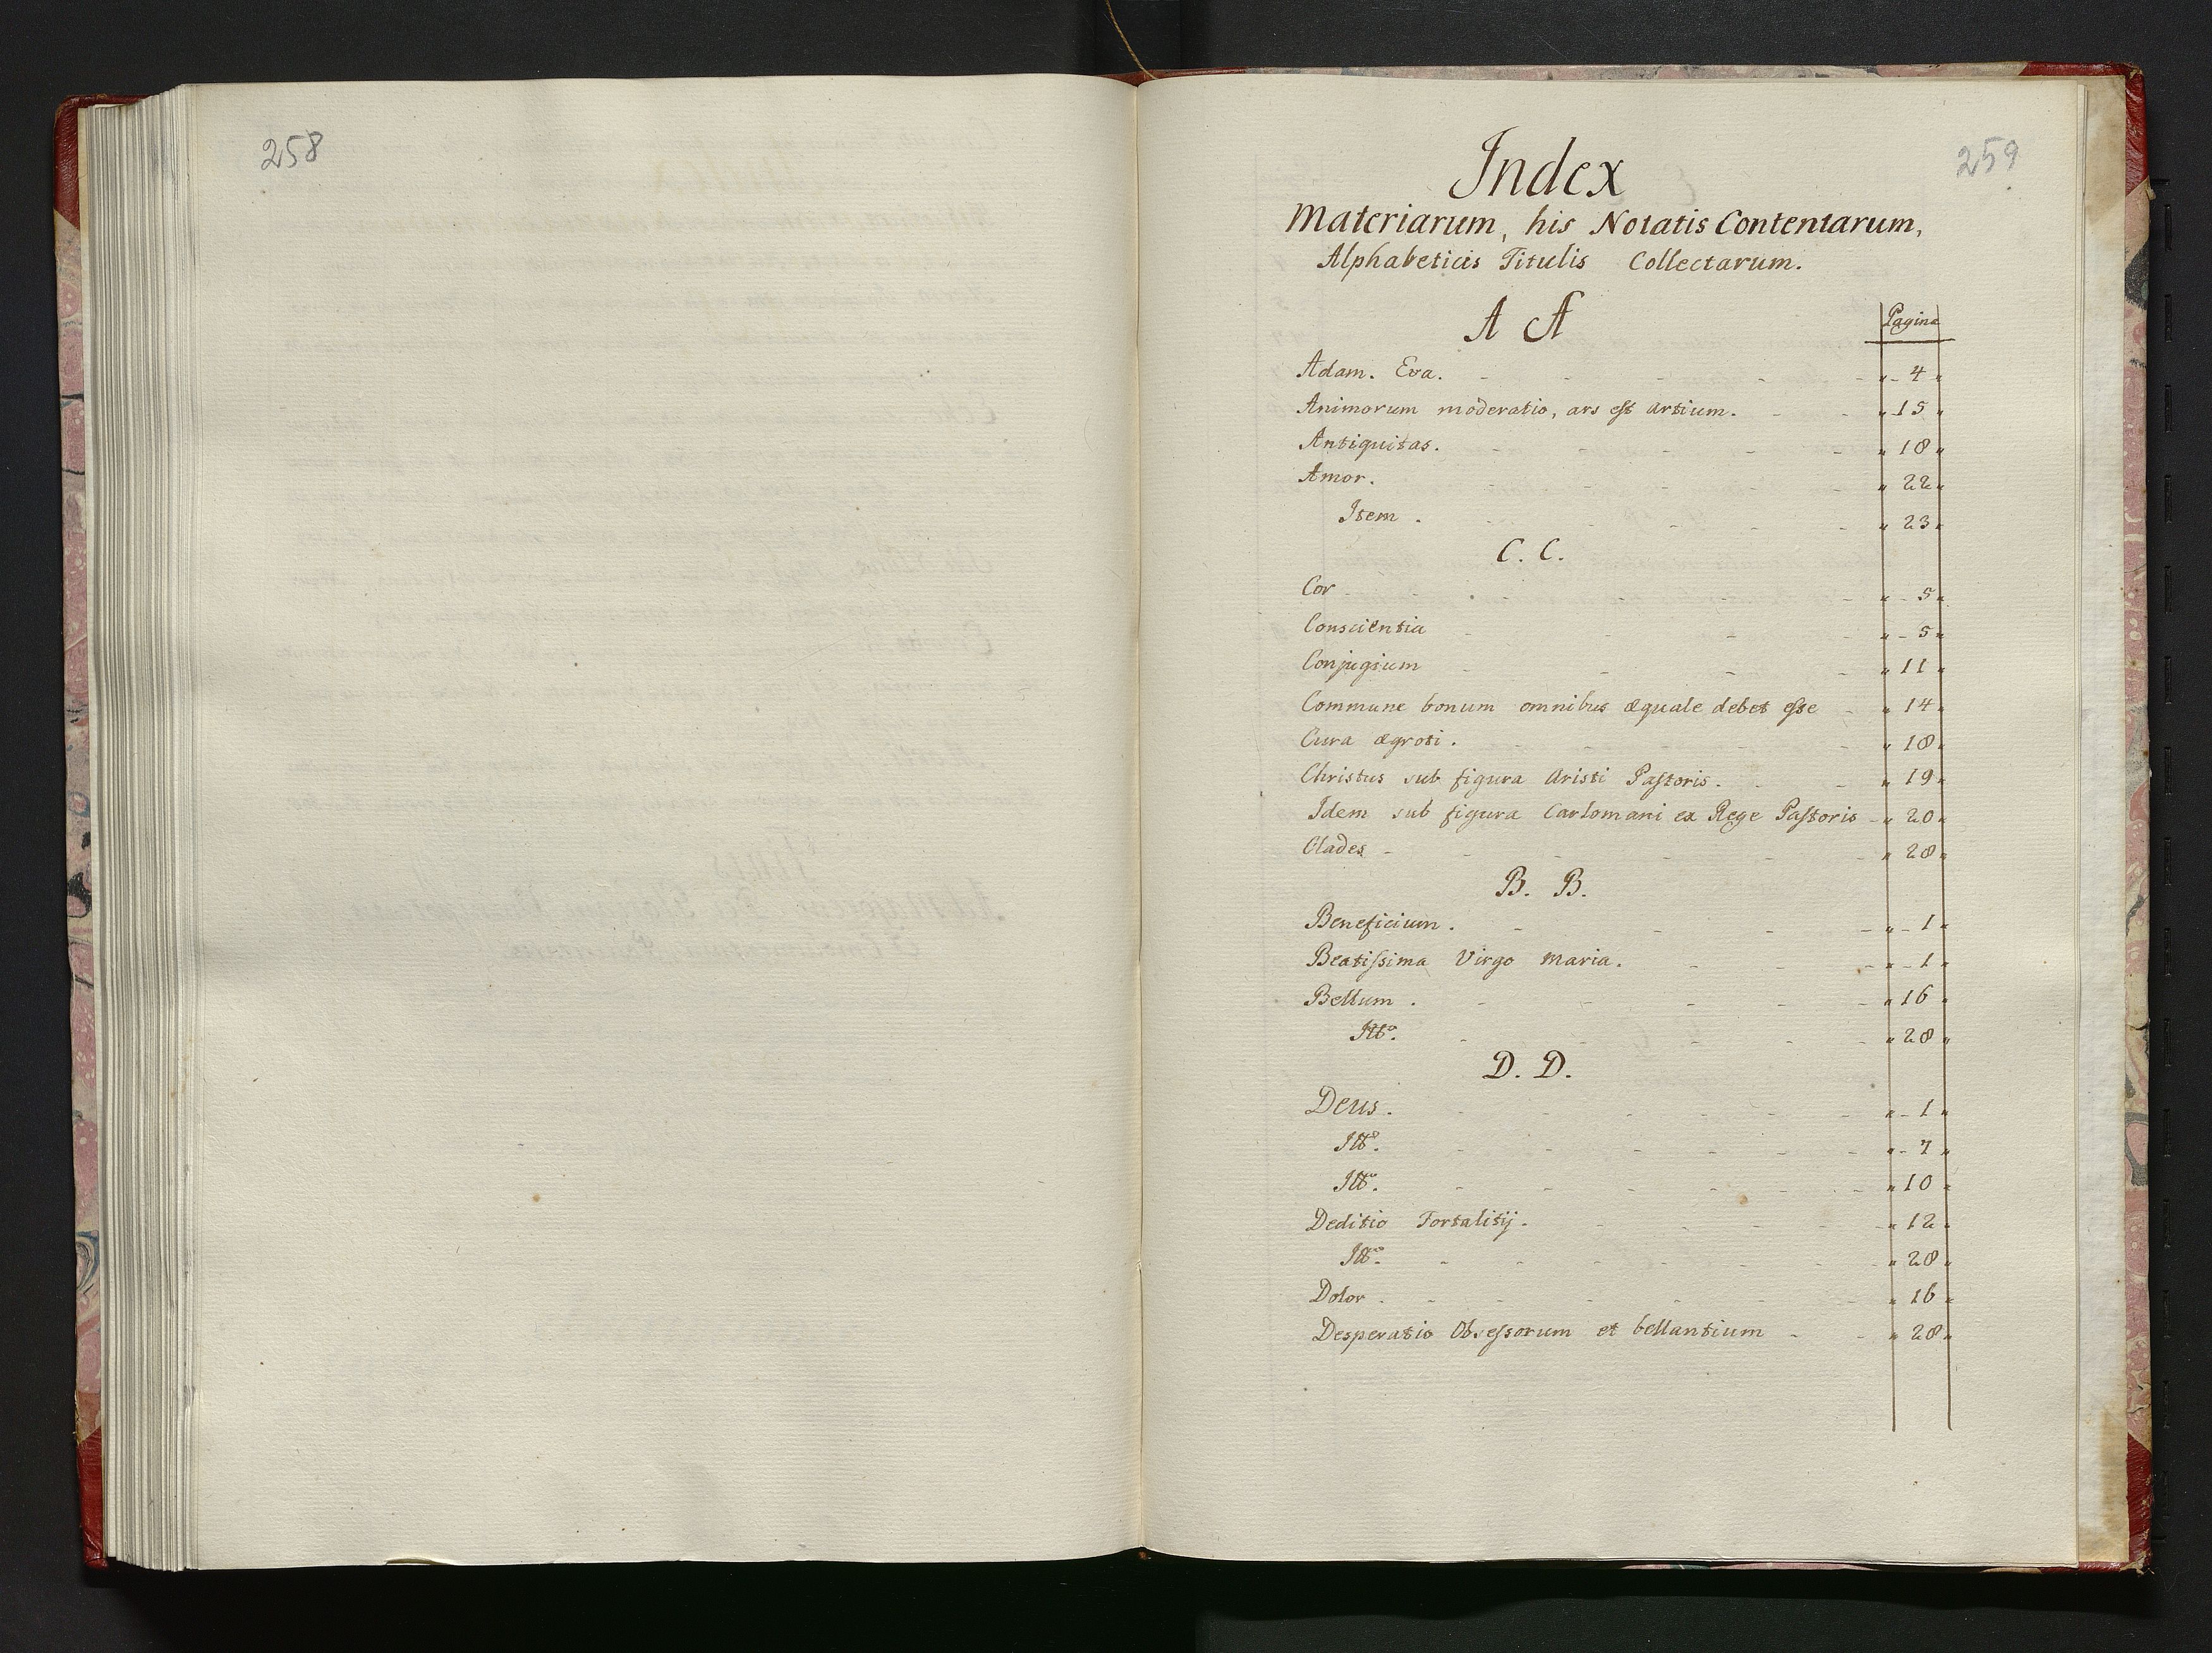 258
259
Index
Materiarum, his Notatis Contentarum,
Alphabeticis Titulis Collectarum.
A A
Pagina
Adam. Eva. - - - - - „ - 4 „
Animorum moderatio, ars est artium. - - „ 15 „
Antiquitas. - - - - - „ 18 „
Amor. - - - - - „ 22 „
Item . - - - - - „ 23 „
C. C.
Cor - - - - - - „ - 5 „
Conscientia - - - - „ - 5 „
Conjugium - - - - „ 11 „
Commune bonum omnibus æquale debet esse - „ 14 „
Cura ægroti . - - - - - „ 18 „
Christus sub figura Aristi Pastoris. - - „ 19 „
Idem sub figura Carlomani ex Rege Pastoris - „ 20 „
Clades - - - - - - „ 28 „
B. B.
Beneficium . - - - - „ - 1 „
Beatissima Virgo Maria. - - - „ - 1 „
Bellum . - - - - - „ 16 „
Itto. - - - - - „ 28 „
D. D.
Deus. - - - - - - „ - 1 „
Itto. - - - - - - „ - 7 „
Itto. - - - - - - „ 10 „
Deditio Fortalitij. - - - - „ 12 „
Itto. - - - - - - „ 28 „
Dolor . - - - - - „ 16 „
Desperatio Obsessorum et bellantium - - „ 28 „